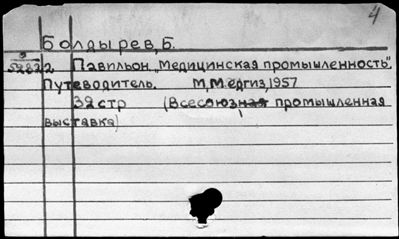 4
Болдырев, Б.
Э
52822 Павильон „Медицинская промышленность".
Путеводитель. М, Медгиз, 1957
32 стр (Всесоюзная промышленная
выставка)